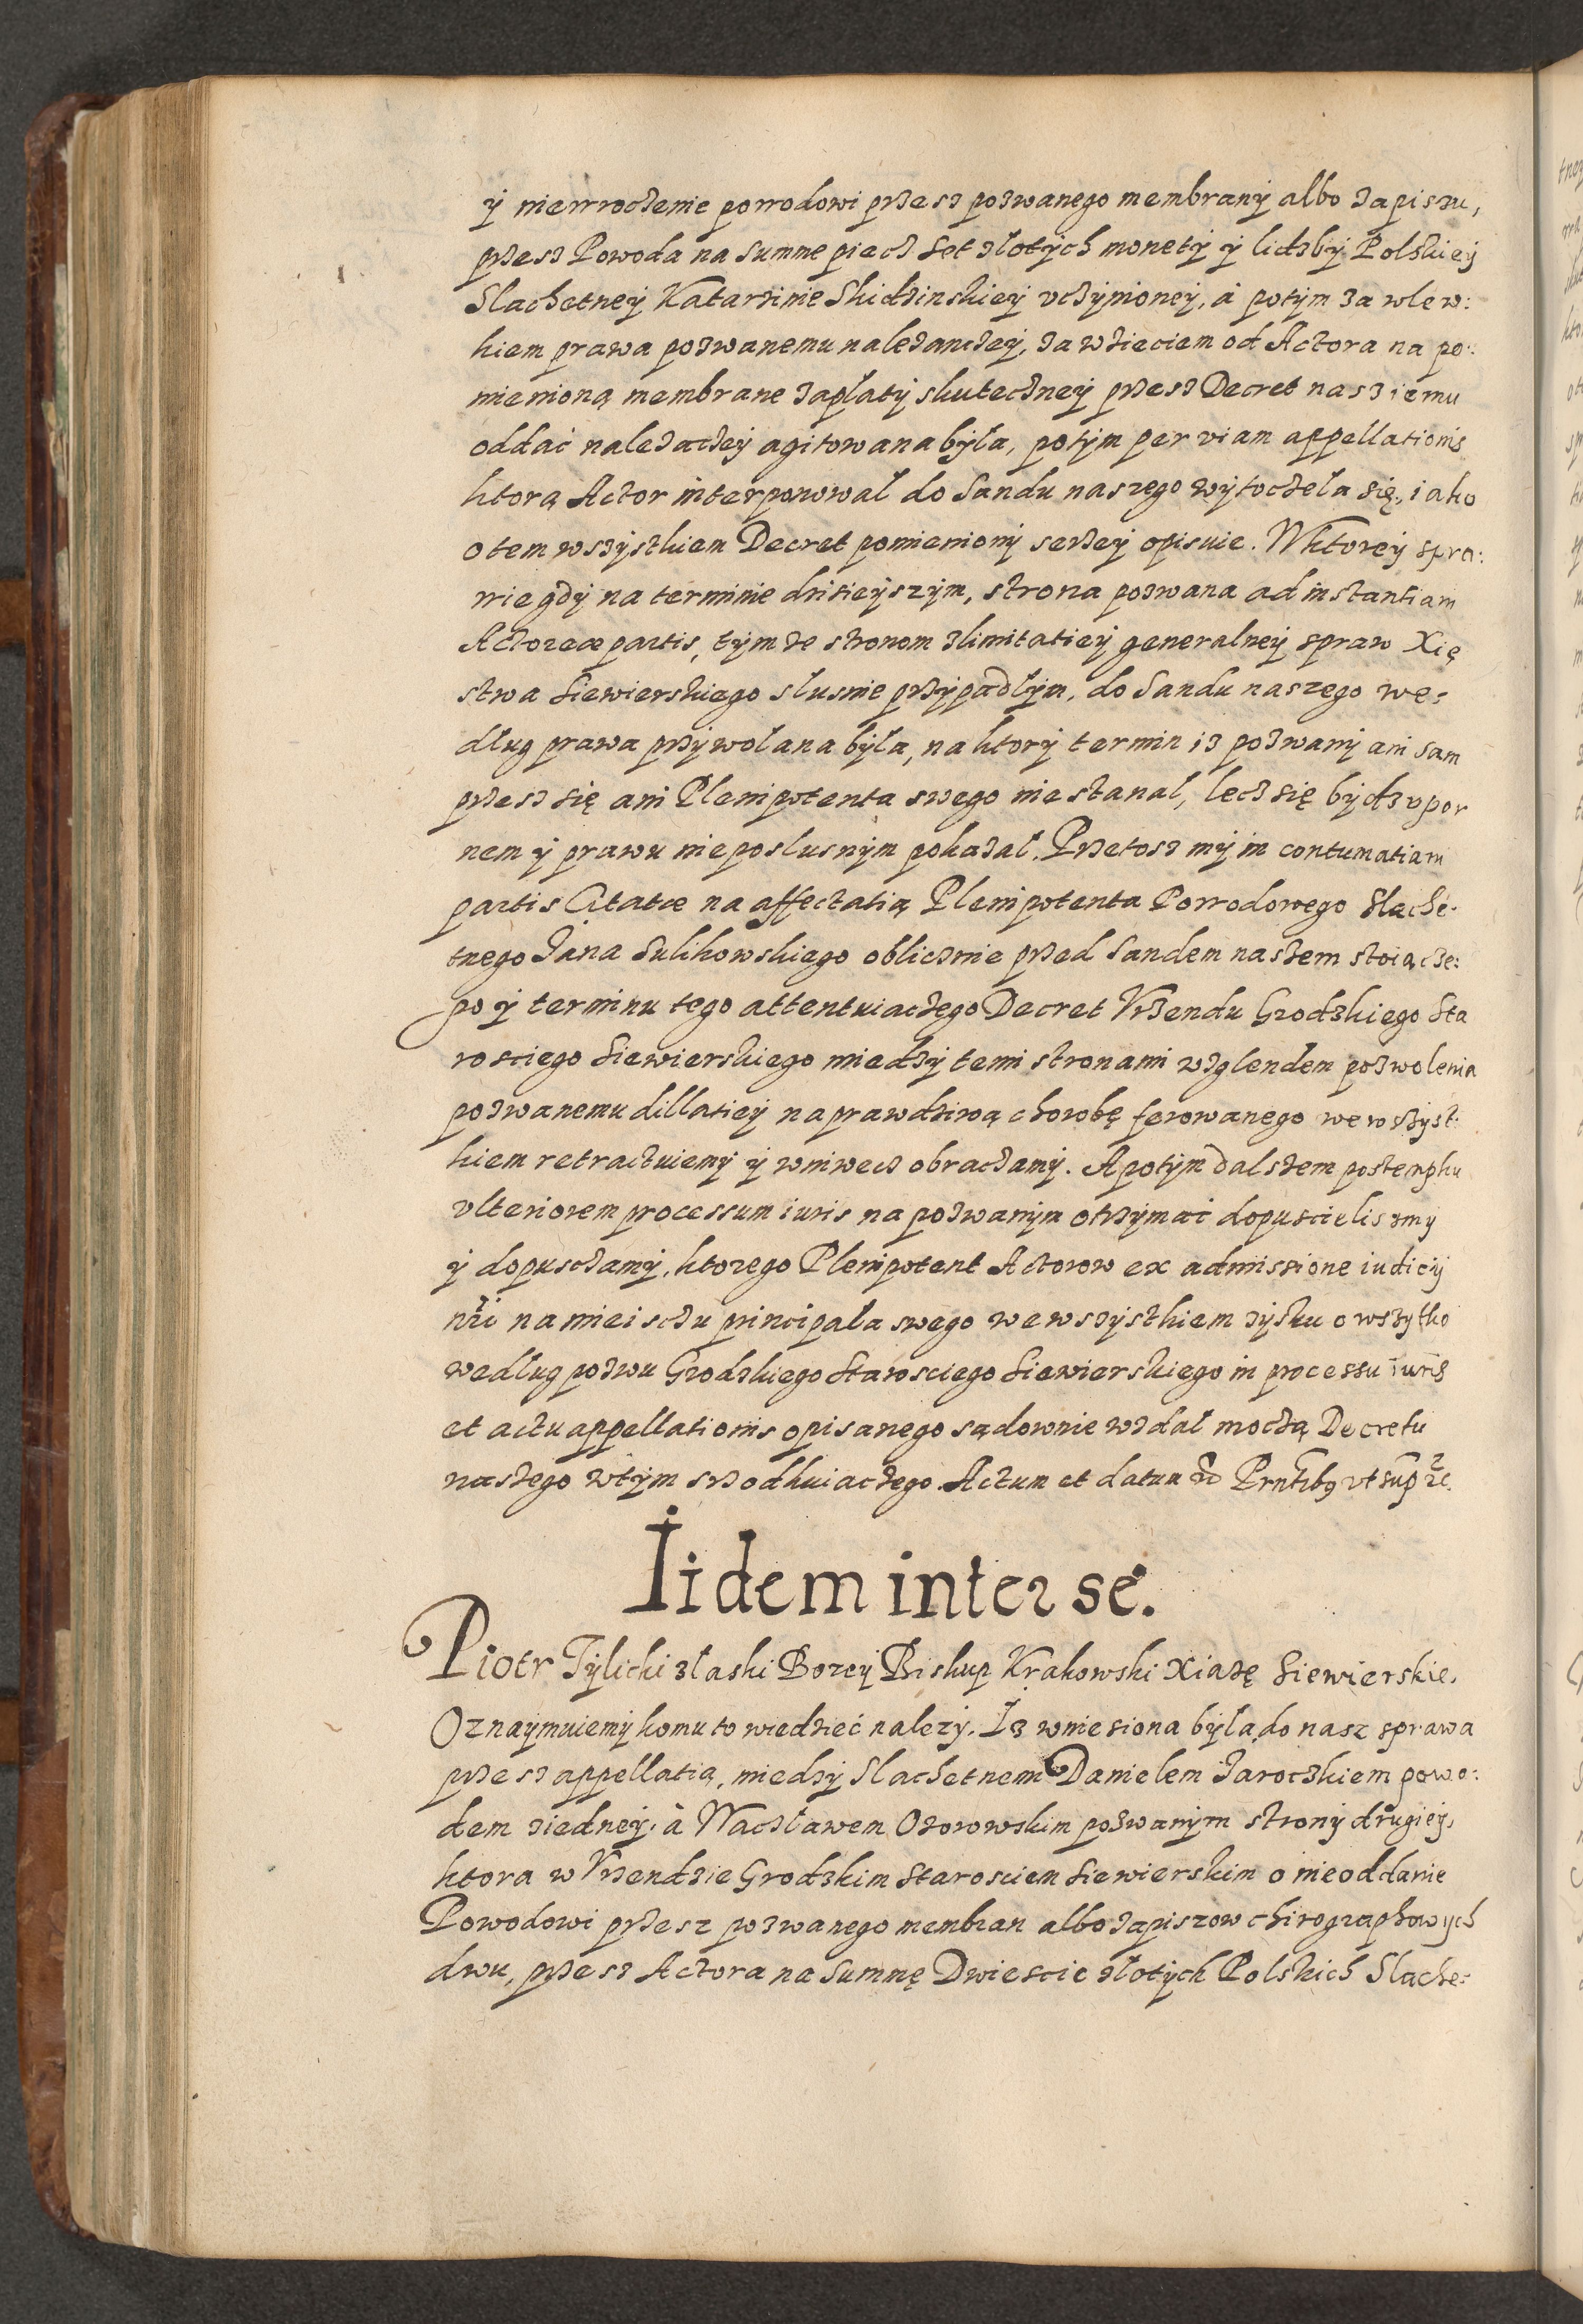 ÿ niewroczenie powodowi przesz pozwanego membranÿ albo zapiszu,
przesz Powoda na Summe piecz Set złotÿch monetÿ ÿ liczbÿ Polskieÿ
Slachetneÿ Katarzinie Skidzinskieÿ vczÿnioneÿ, à potÿm za wlew:
kiem prawa pozwanemu należanczeÿ, za wzieciem od Actora na po:
mienioną membrane zapłatÿ skuteczneÿ przesz Decret nasz iemu
oddać należaczeÿ agitowana bÿła, potÿm per viam appellationis
ktorą Actor interponował do Sandu naszego wÿtoczeła się, iako
o tem wszÿstkiem Decret pomienionÿ serzeÿ opisuie. W ktoreÿ spra:
wie gdÿ na terminie dzisieÿszÿm, strona pozwana ad instantiam
Actoreæ partis, tÿm ze stronom z limitatieÿ generalneÿ spraw Xię
stwa Siewierskiego slusnie przÿpadłÿm, do Sandu naszego we:
dlug prawa przÿwołana bÿła, na ktorÿ termin iz pozwanÿ ani sam
przesz się ani Plenipotenta swego nie stanał, lecz się bÿdz vpor
nem ÿ prawu nieposlusnÿm pokazał. Przetosz mÿ in contumatiam
partis Citatæ na affectatią Plenipotenta Powodowego Slache:
tnego Jana Sulikowskiego oblicznie przed Sandem naszem stoiącze:
go ÿ terminu tego attentuiaczego Decret Vrzendu Grodzkiego Sta
rosciego Siewierskiego miedzÿ temi stronami wzglendem pozwolenia
pozwanemu dillatieÿ na prawdziwą chorobę ferowanego we wszÿst:
kiem retractuiemÿ ÿ wniwecz obraczamÿ. A potÿm dalszem postempku
vlteriorem processum iuris na pozwanÿm otrzÿmać dopuscielismÿ
ÿ dopusczamÿ, ktorego Plenipotent Actorow ex admissione iudicÿ
nri na mieisczu principała swego we wszÿstkiem zÿsku o wszÿtko
wedlug pozwu Grodzkiego Starosciego Siewierskiego in processu iuris
et actu appellationis opisanego sądownie wzdał moczą Decretu
naszego w tÿm srzodkuiaczego. Actum et datum Prntibq vt sup
Iidem inter se.
Piotr Tÿlicki z łaski Bozeÿ Biskup Krakowski Xiażę Siewierskie.
Oznaÿmuiemÿ komu to wiedzieć nalezÿ. Iz wniesiona bÿła do nasz sprawa
przesz appellatią, miedzÿ Slachetnem Danielem Jaroczkiem powo:
dem ziedneÿ, à Wacławem Ozorowskim pozwanÿm stronÿ drugieÿ,
ktora w Vrzendzie Grodzkim Starosciem Siewierskim o nieoddanie
Powodowi przesz pozwanego membran albo zapiszow chirographowÿch
dwu, przesz Actora na Summę Dwiescie złotÿch Polskich Slache: